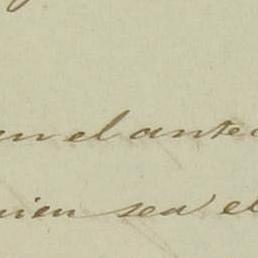 en el ante
uien sea el